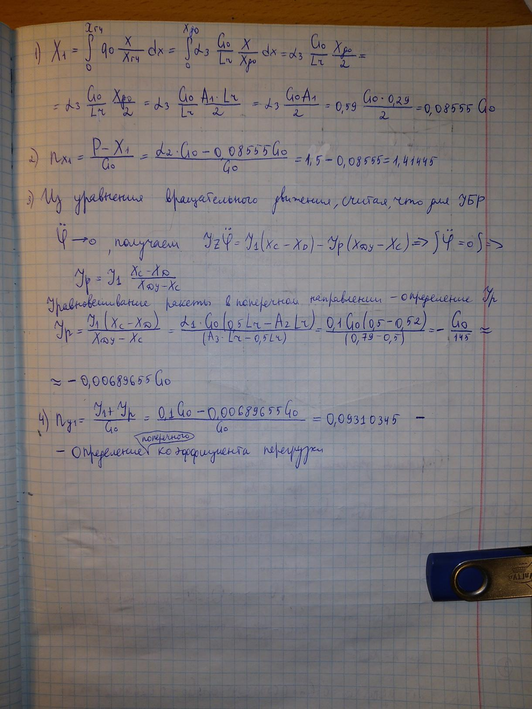 1) X₁ = ∫₀^{xгч} q₀ x/xгч dx = ∫₀^{xр₀} α₃ G₀/Lг x/xр₀ dx = α₃ G₀/Lг xр₀/2 =
= α₃ G₀/Lг xр₀/2 = α₃ G₀/Lг A₁·Lг/2 = α₃ G₀A₁/2 = 0,59 G₀·0,29/2 = 0,08555 G₀
2) nx₁ = (P − X₁)/G₀ = (α₂·G₀ − 0,08555G₀)/G₀ = 1,5 − 0,08555 = 1,41445
3) Из уравнения вращательного движения, считая, что для УБР
φ̈ → 0, получаем Jzφ̈ = Y₁(xc − xD) − Yp(xду − xc) => {φ̈ = 0} =>
Yp = Y₁ (xc − xD)/(xду − xc)
Уравновешивание ракеты в поперечной направлении − определение Yp
Yp = Y₁(xc − xD)/(xду − xc) = α₁·G₀(0,5Lг − A₂Lг)/(A₃·Lг − 0,5Lг) = 0,1G₀(0,5 − 0,52)/(0,79 − 0,5) = − G₀/145 ≈
≈ − 0,00689655G₀
4) ny₁ = (Y₁ + Yp)/G₀ = (0,1G₀ − 0,00689655G₀)/G₀ = 0,09310345 −
поперечного
− Определение коэффициента перегрузки